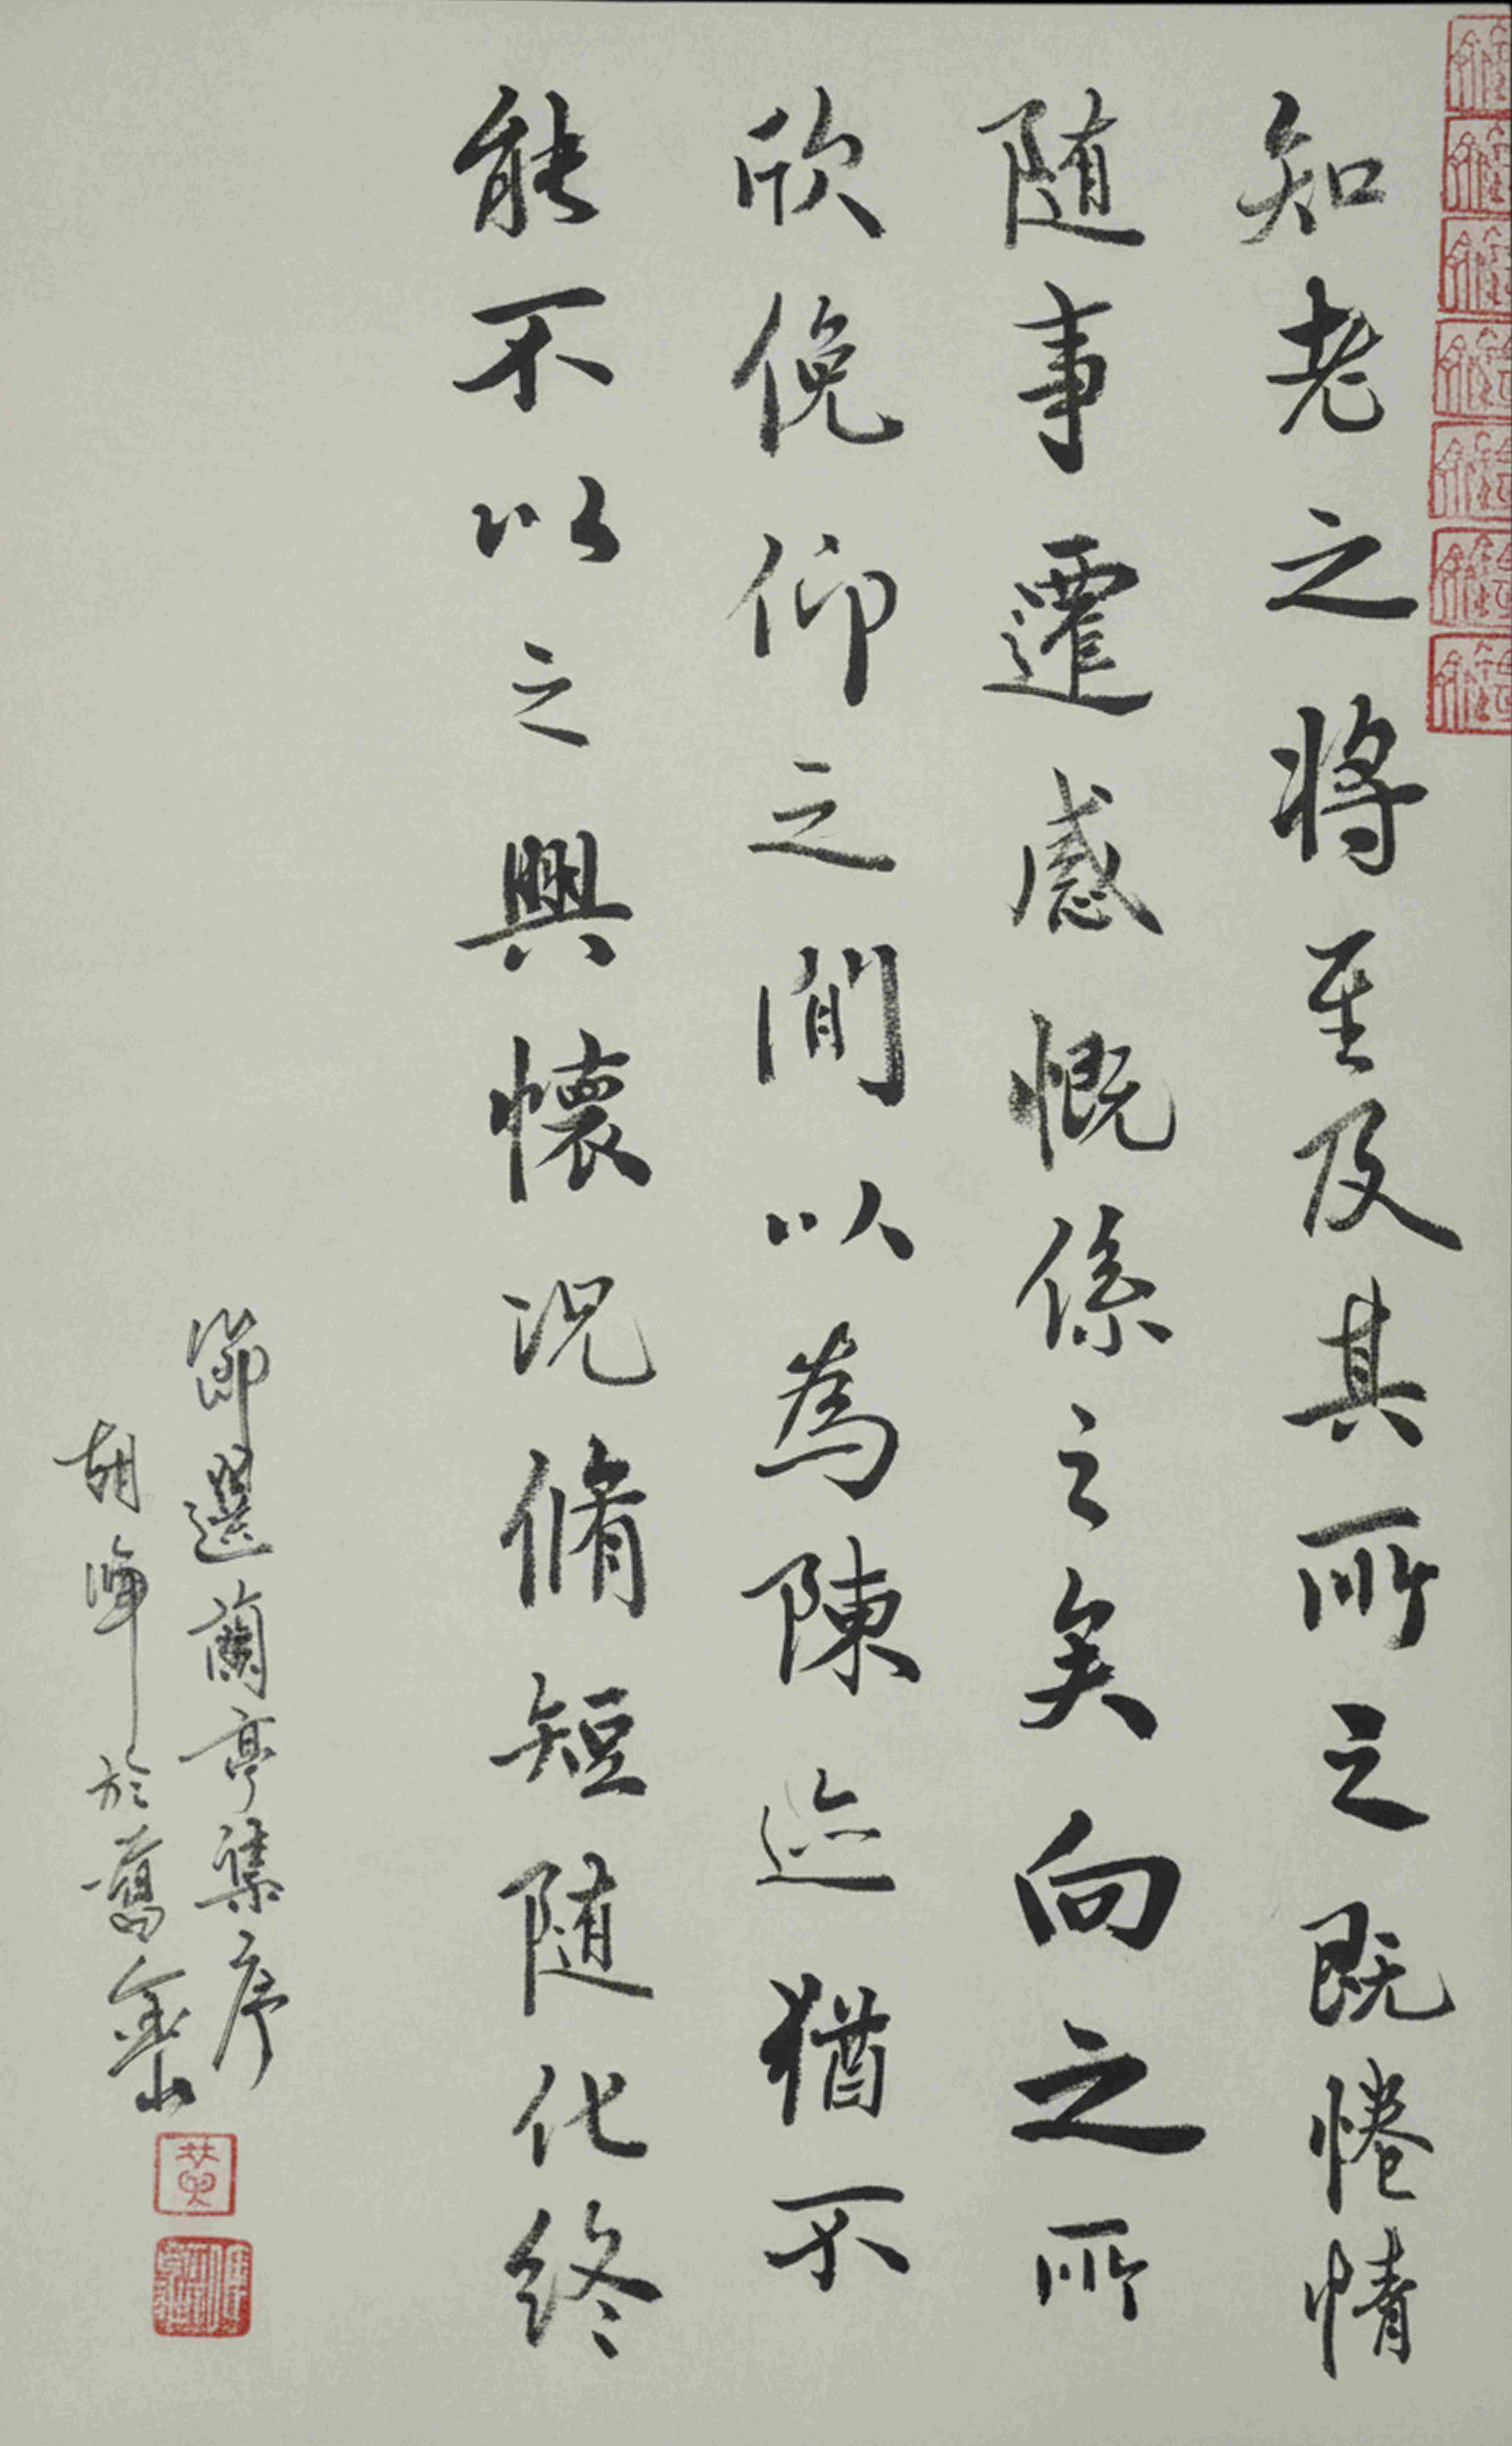 知老之将至及其所之既惓情
随事遷感慨係之矣向之所
欣俛仰之間以為陳迹猶不
能不以之興懷况脩短随化终
節選蘭亭集序
胡暐於舊金山
黄